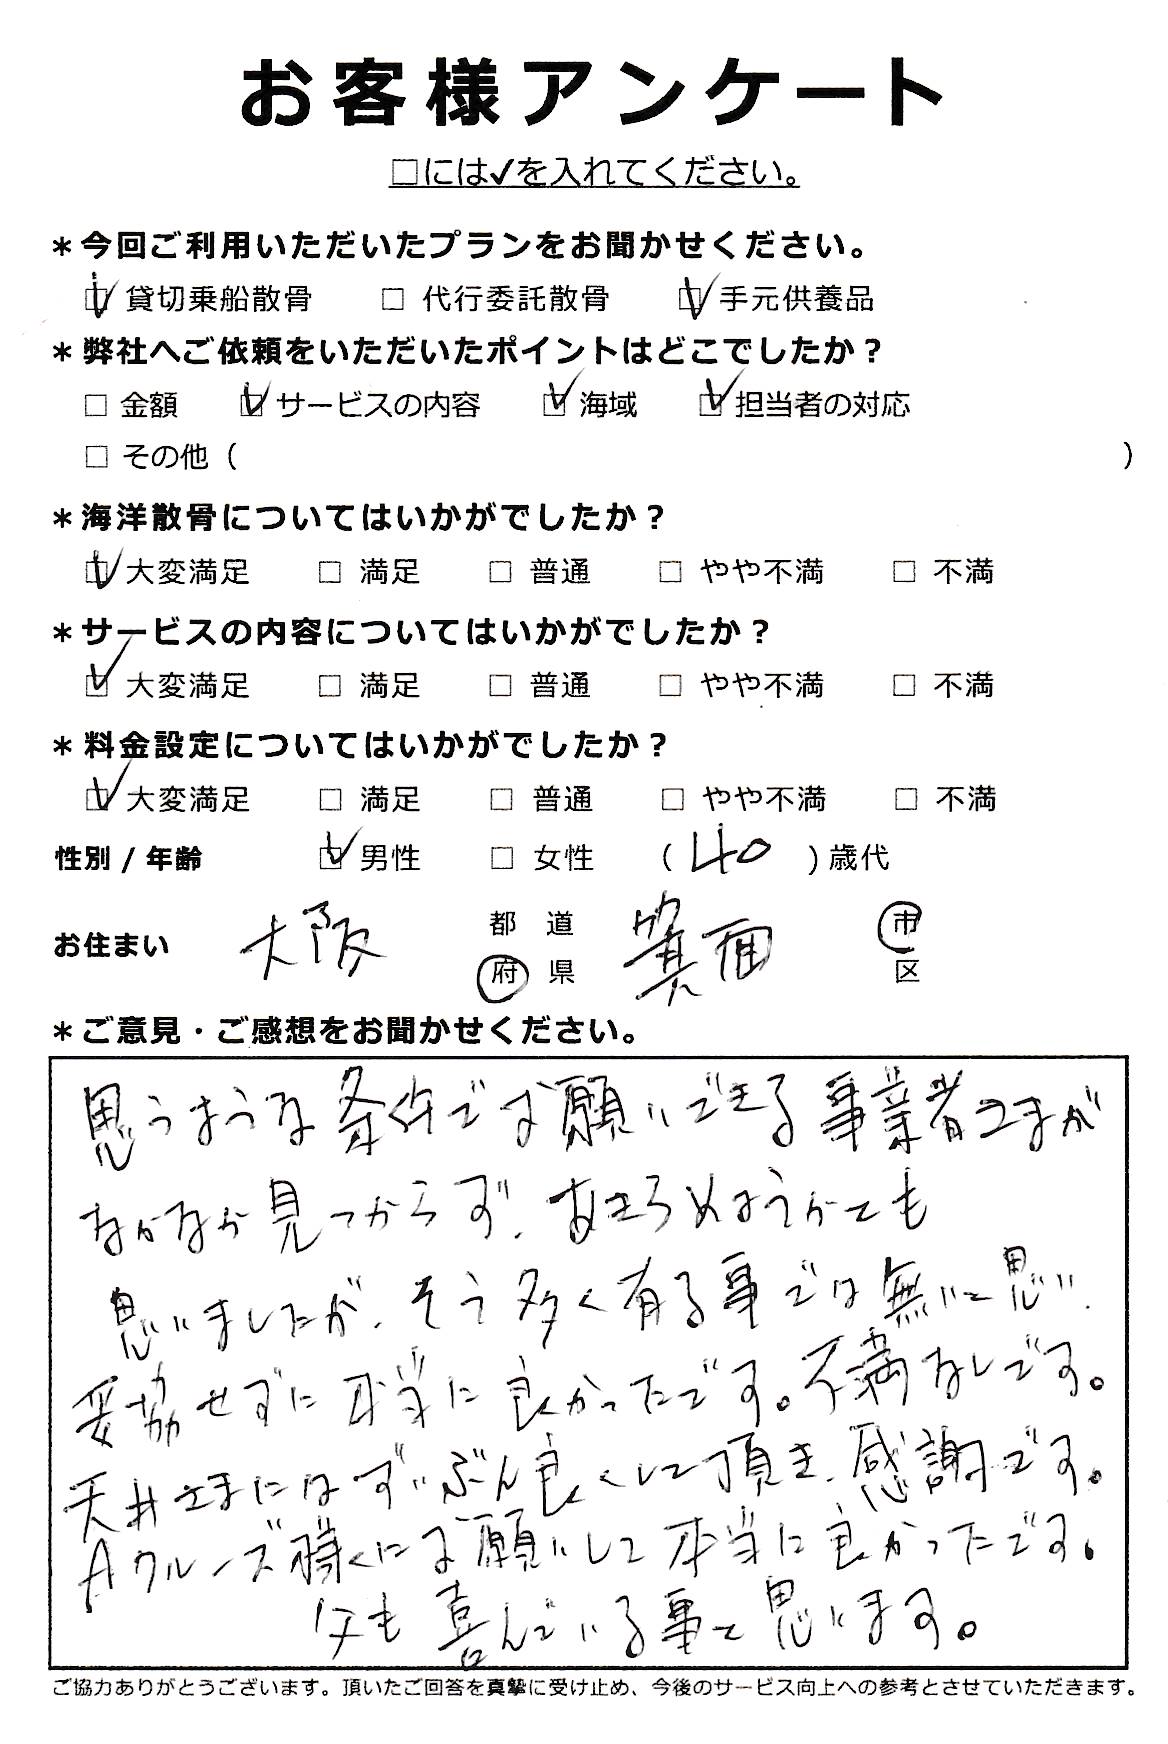 お客様アンケート
□には✓を入れてください。
＊今回ご利用いただいたプランをお聞かせください。
☑ 貸切乗船散骨 □ 代行委託散骨 ☑ 手元供養品
＊弊社へご依頼をいただいたポイントはどこでしたか？
□ 金額 ☑ サービスの内容 ☑ 海域 ☑ 担当者の対応
□ その他（ ）
＊海洋散骨についてはいかがでしたか？
☑ 大変満足 □ 満足 □ 普通 □ やや不満 □ 不満
＊サービスの内容についてはいかがでしたか？
☑ 大変満足 □ 満足 □ 普通 □ やや不満 □ 不満
＊料金設定についてはいかがでしたか？
☑ 大変満足 □ 満足 □ 普通 □ やや不満 □ 不満
性別 / 年齢 ☑ 男性 □ 女性 （ 40 ）歳代
お住まい 大阪 都 道 府 県 箕面 市 区
＊ご意見・ご感想をお聞かせください。
思うような条件でお願いできる事業者さまが
なかなか見つからず、あきらめようかとも
思いましたが、そう多く有る事では無いと思い、
妥協せずに本当に良かったです。不満なしです。
天井さまにはずいぶん良くして頂き、感謝です。
Aクルーズ様にお願いして本当に良かったです。
父も喜んでいる事と思います。
ご協力ありがとうございます。頂いたご回答を真摯に受け止め、今後のサービス向上への参考とさせていただきます。